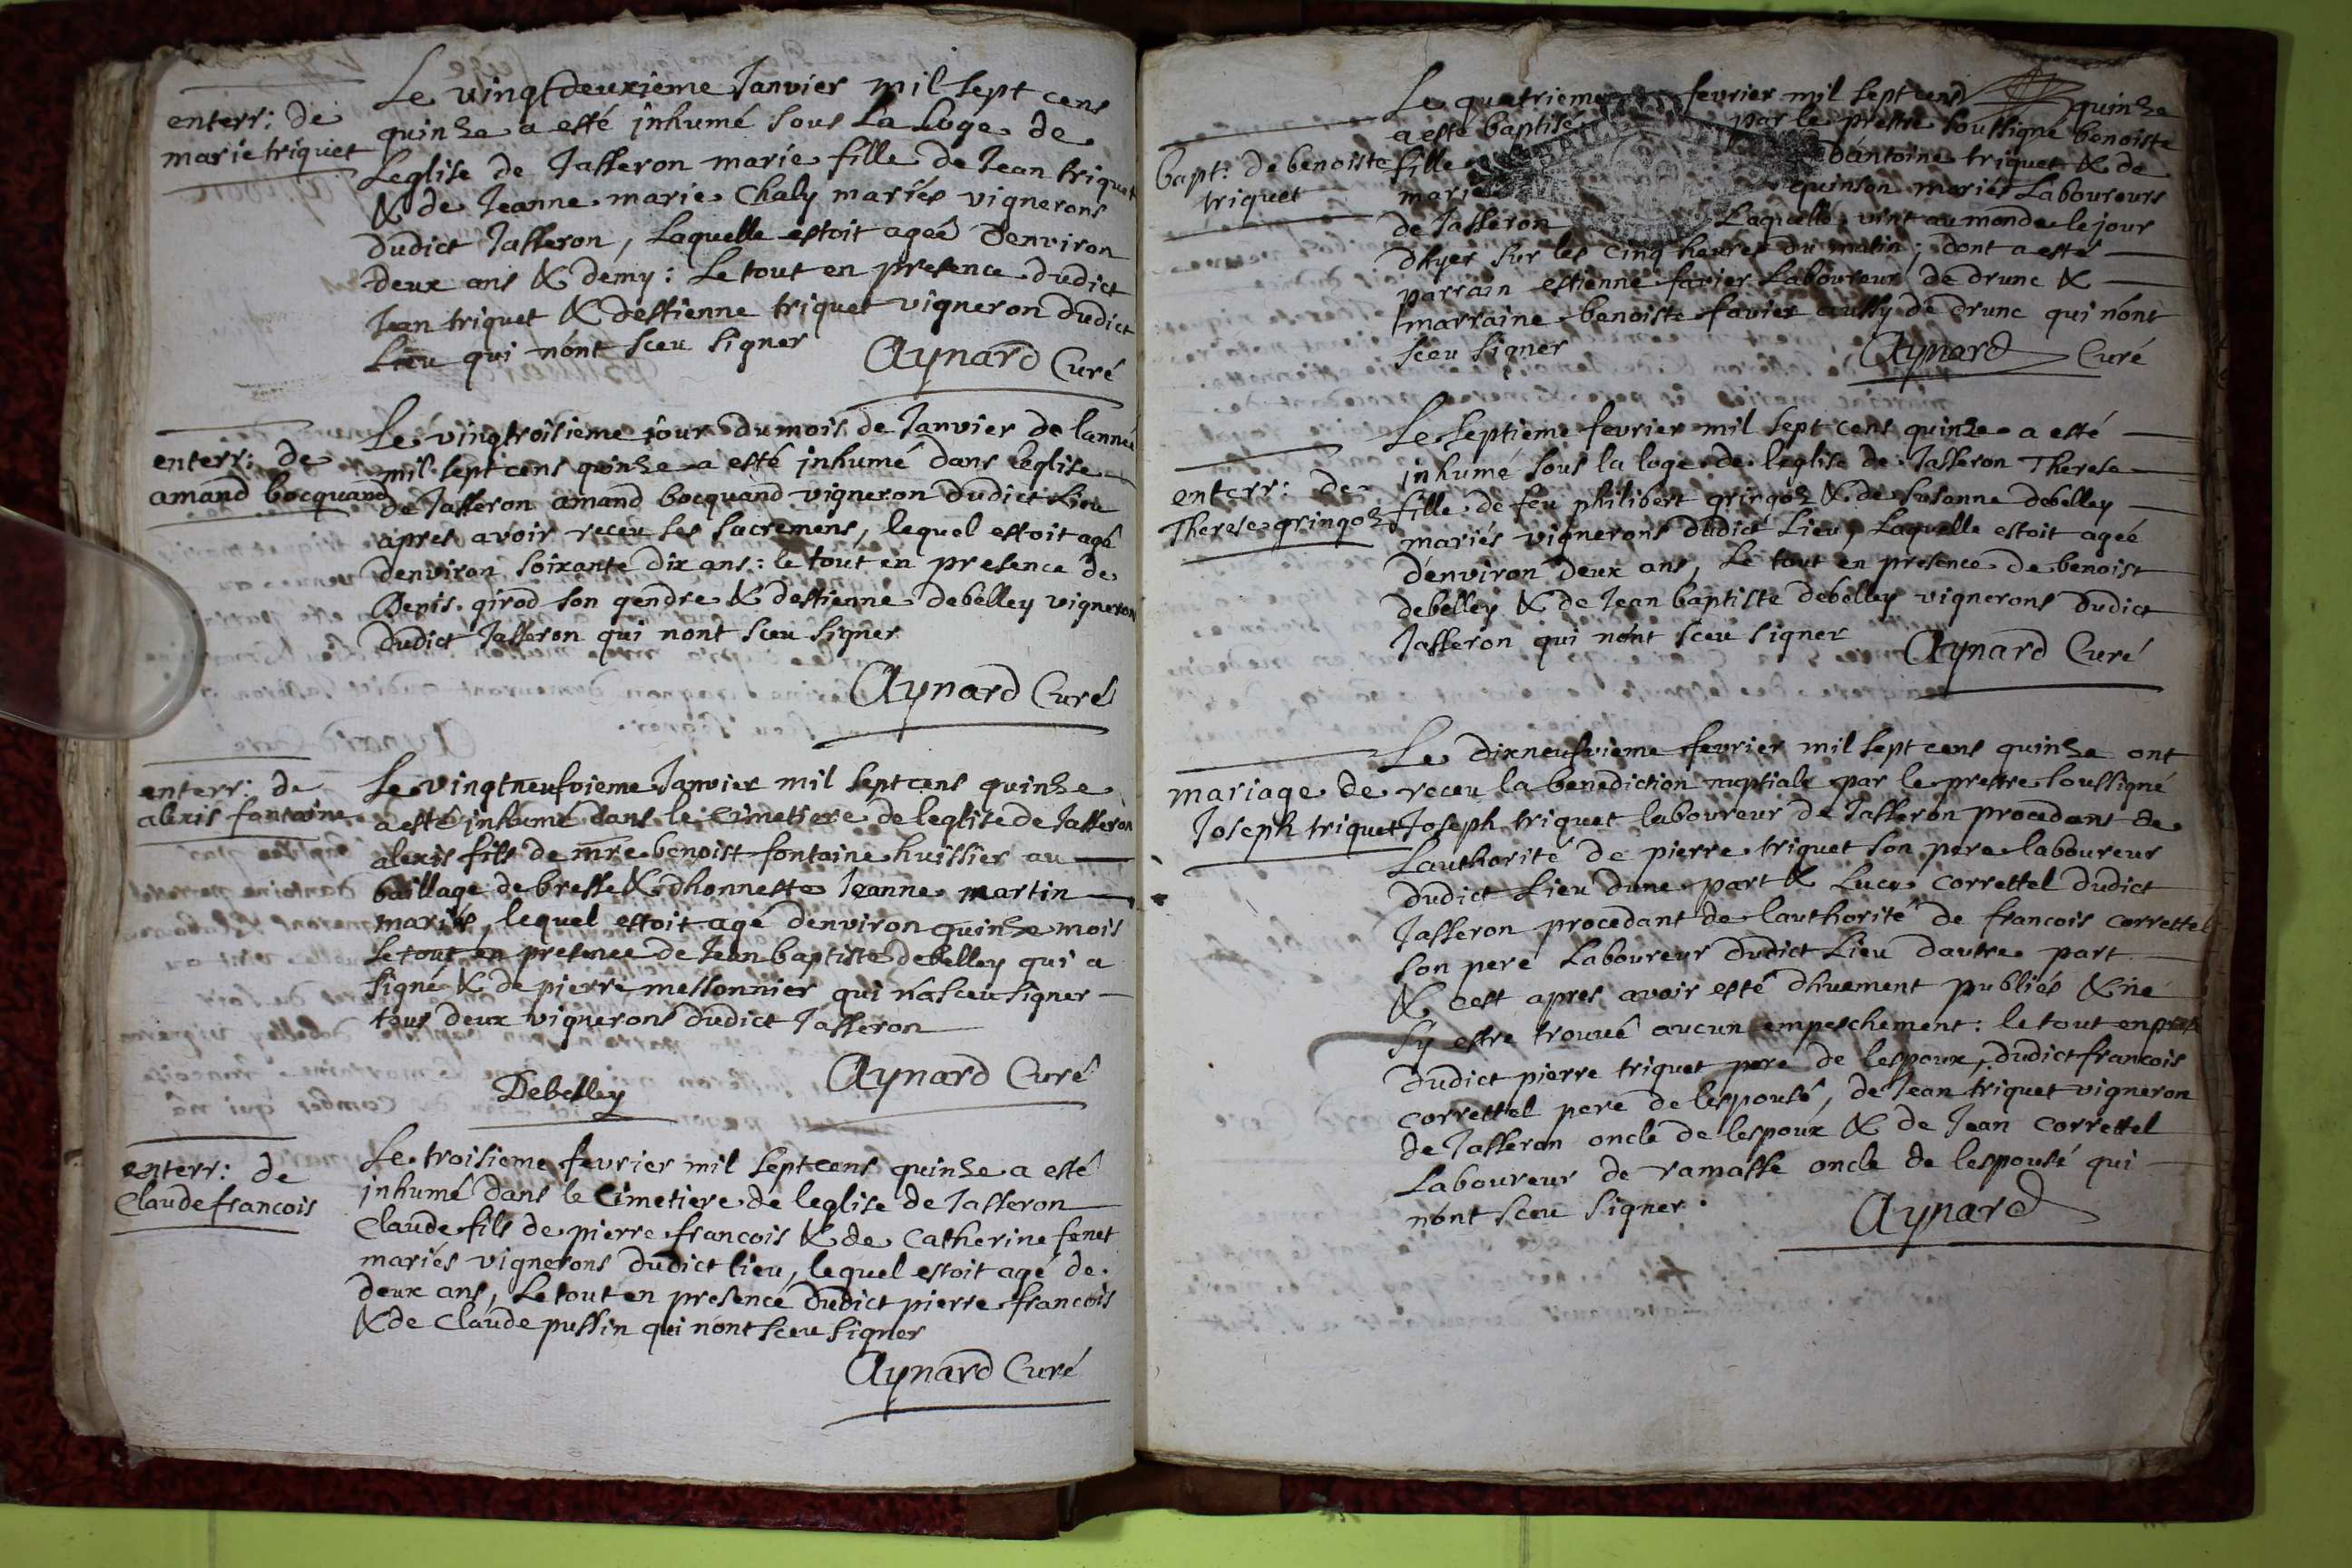 enterr: de
marie triquet
Le vingtdeuxieme Janvier mil sept cens
quinze a esté inhumé sous la Loge de
Leglise de Jasseron marie fille de Jean triquet
& de Jeanne marie Chaly mariés vignerons
dudict Jasseron, Laquelle estoit ageé denviron
deux ans & demy: Le tout en presence dudict
Jean triquet & destienne triquet vigneron dudict
Lieu qui nónt sceu signer
Aynard Curé
enterr: de
amand bocquand
Le vingtroisieme jour du mois de Janvier de lanneé
mil sept cens quinze a esté inhumé dans leglise
de Jasseron amand bocquand vigneron dudict Lieu
apres avoir receu ses sacremens, lequel estoit agé
denviron soixante dix ans: le tout en presence de
Denis girod son gendre & destienne debelley vigneron
dudict Jasseron qui nont sceu signer
Aynard Curé
enterr: de
alexis fontaine
Le vingtneufvieme Janvier mil septcens quinze
a esté inhumé dans le cimetiere de leglise de Jasseron
alexis fils de mre benoist fontaine huissier au
baillage de bresse & dhonneste Jeanne martin
mariés, lequel estoit agé denviron quinze mois
Le tout en presence de Jean baptiste debelley qui a
signé & de pierre messonnier qui ná sceu signer
tous deux vignerons dudict Jasseron
Aynard Curé
Debelley
enterr: de
Claude francois
Le troisieme fevrier mil septcens quinze a esté
inhumé dans le Cimetiere de leglise de Jasseron
Claude fils de pierre francois & de Catherine fenet
mariés vignerons dudict lieu, lequel estoit agé de
deux ans, Le tout en presence dudict pierre francois
& de Claude pussin qui nónt sceu signer
Aynard Curé
bapt: de benoiste
triquet
Le quatrieme fevrier mil sept cens quinze
a esté baptisé par le prestre soussigné benoiste
fille dantoine triquet & de
marie quinson mariés Laboureurs
de Jasseron Laquelle vint au monde le jour
dhyer sur les cinq heures du matin; dont a esté
parrain estienne favier Laboureur de drunc &
marraine benoiste favier aussy de drunc qui nónt
sceu signer
Aynard Curé
enterr: de
Therese gringoz
Le septieme fevrier mil sept cens quinze a esté
inhumé sous la loge de leglise de Jasseron Therese
fille de feu philibert gringoz & de susanne debelley
mariés vignerons dudict Lieu, Laquelle estoit ageé
denviron deux ans, Le tout en presence de benoist
debelley & de Jean baptiste debelley vignerons dudict
Jasseron qui nónt sceu signer
Aynard Curé
mariage de
Joseph triquet
Le dixneufvieme fevrier mil sept cens quinze ont
receu la benediction nuptiale par le prestre soussigné
Joseph triquet laboureur de Jasseron procedant de
Lauthorité de pierre triquet son pere laboureur
dudict Lieu dune part & Luce correttel dudict
Jasseron procedant de lauthorité de francois correttel
son pere Laboureur dudict Lieu dautre part
& cest apres avoir esté dhuement publiés & ne
sy estre trouvé aucun empeschement: le tout en pres
dudict pierre triquet pere de lespoux, dudict francois
correttel pere de lespouse, de Jean triquet vigneron
de Jasseron oncle de lespoux & de Jean correttel
Laboureur de ramasse oncle de lespouse qui
nónt sceu signer.
Aynard